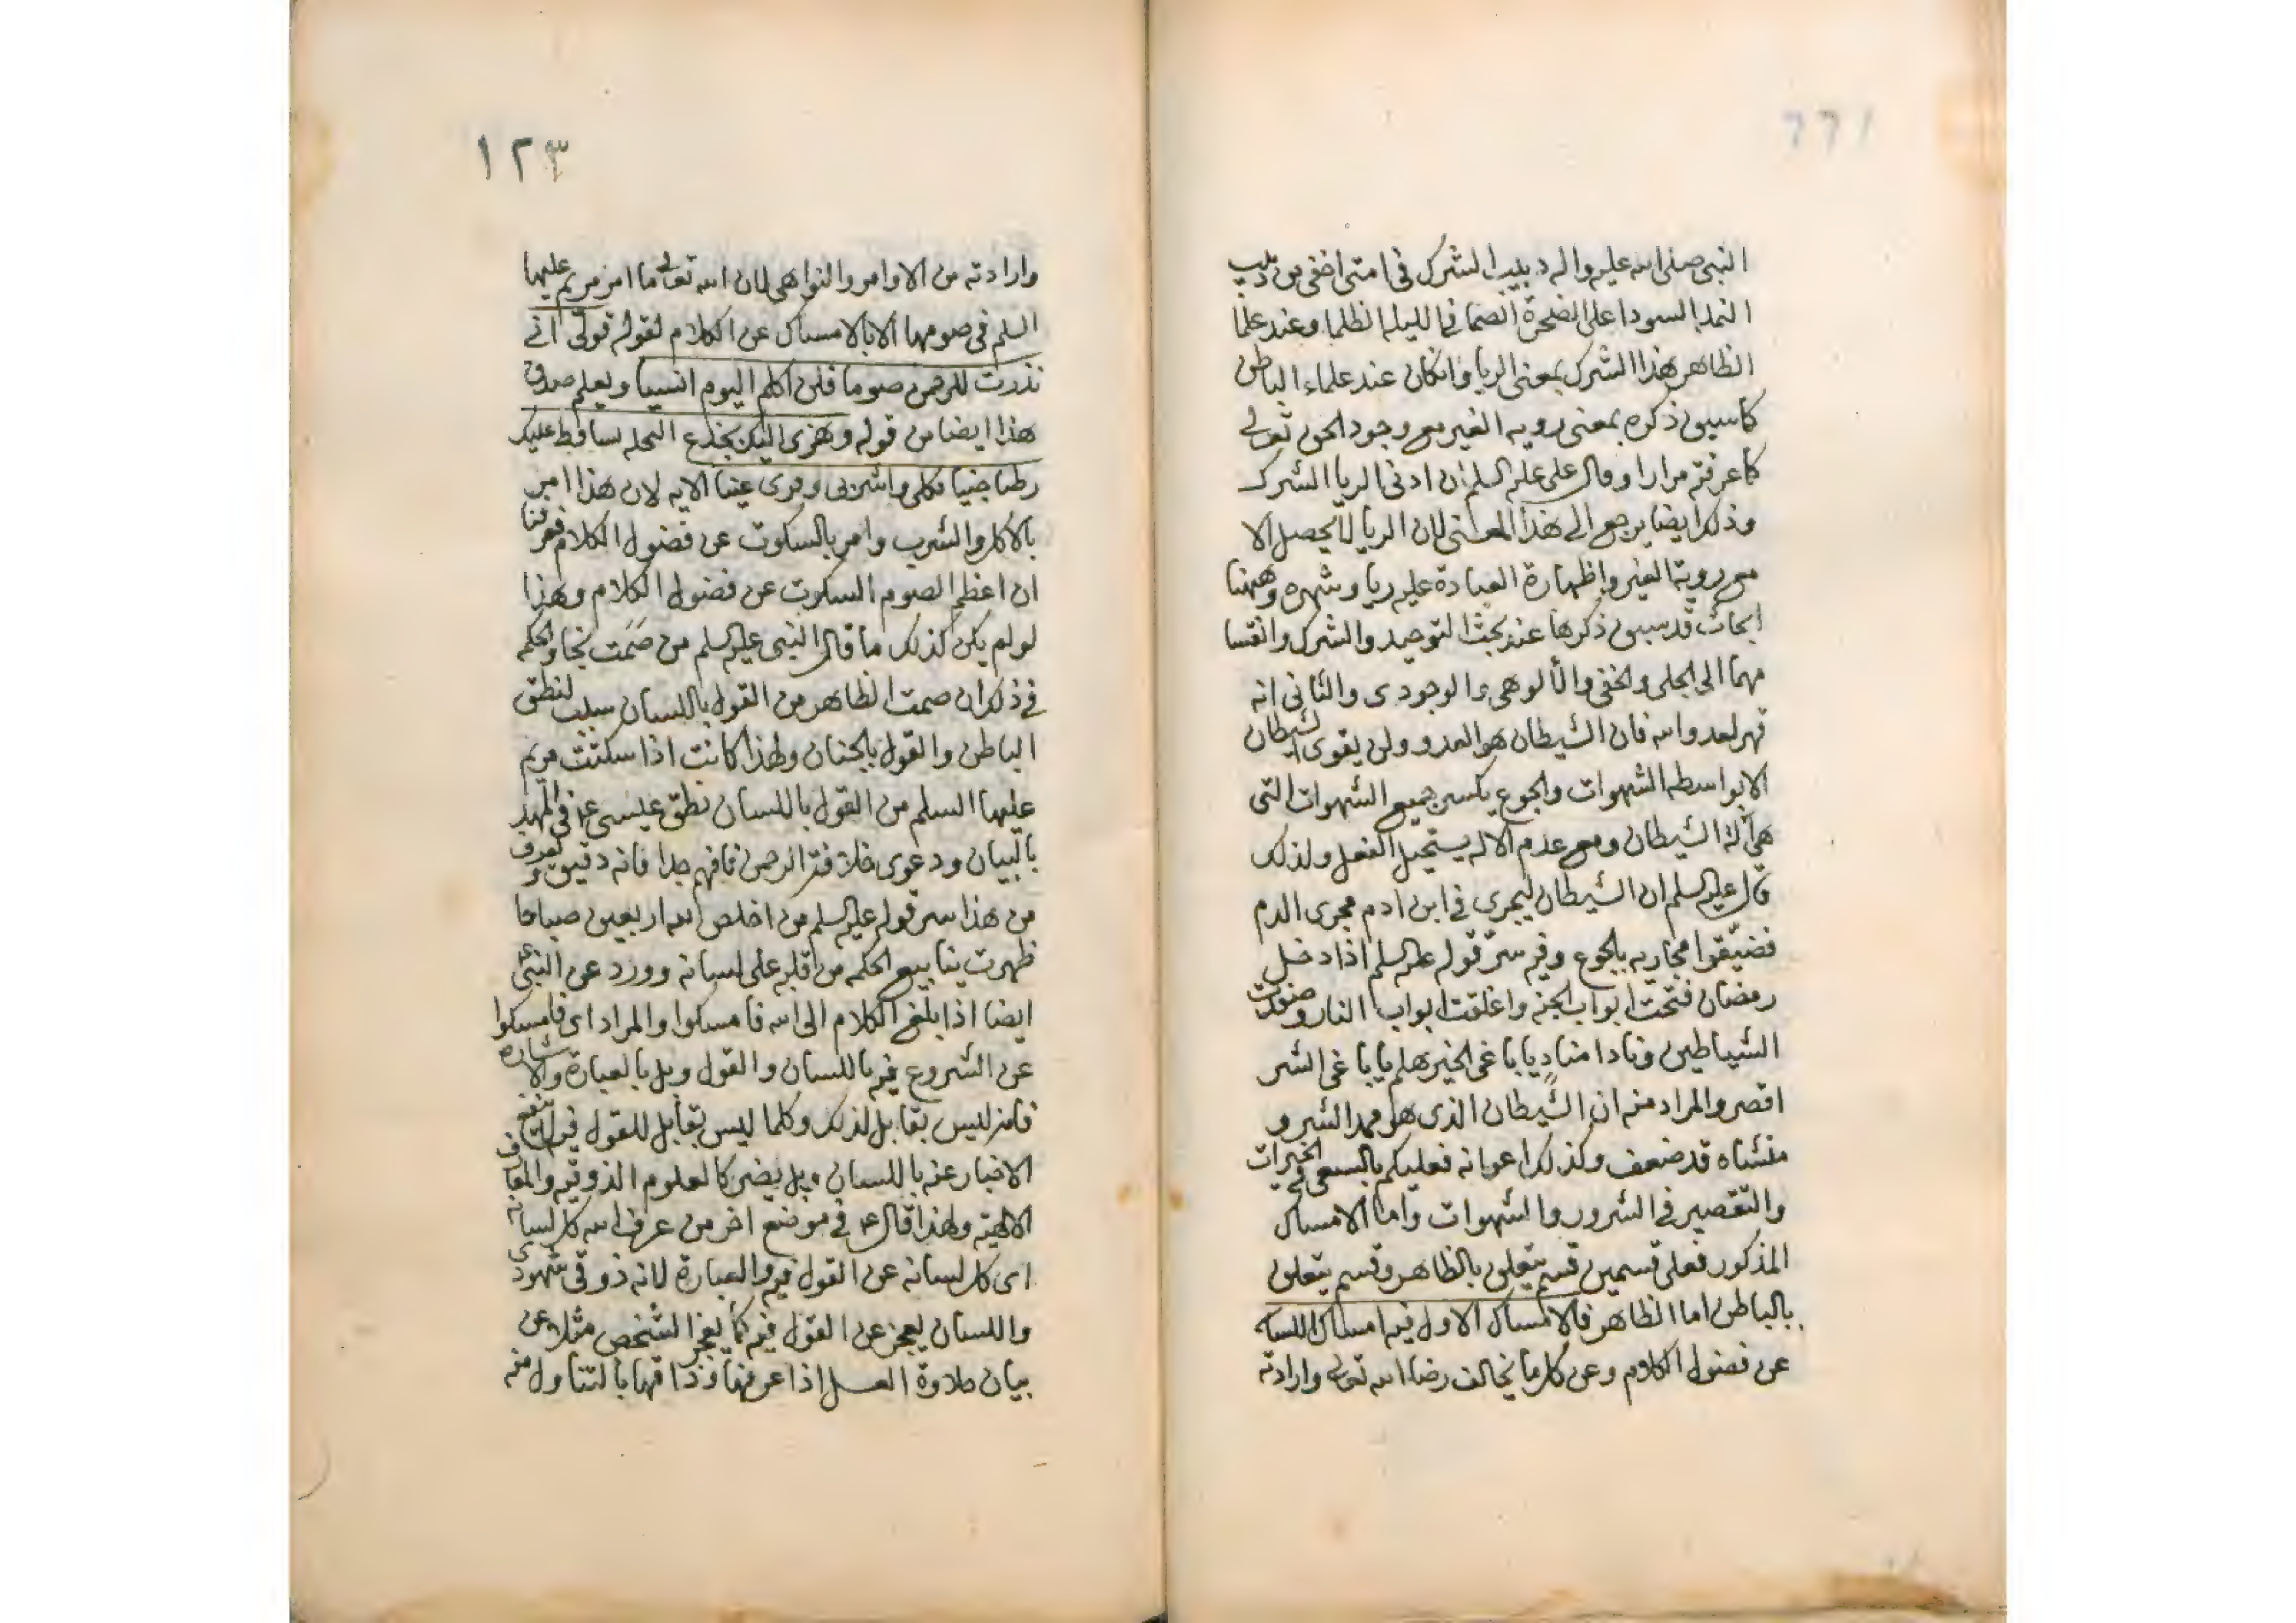 النبي صلى الله عليه واله دبيب الشرك في امتي اخفى من دبيب
النمل السودا على الصخرة الصما في الليله الظلما وعند علما
الظاهر هذا الشرك بمعنى الريا وانكان عند علماء الباطن
كما سبق ذكره بمعنى رويه الغير مع وجود الحق تعالى
كما عرفته مرارا وقال على عليه السلم ان ادنى الريا الشرك
وذلك ايضا يرجع الى هذا المعنى لان الريا لا يحصل الا
مع روية الغير واظهارة العبادة عليه ريا وشهره وههنا
ابحاث قد سبق ذكرها عند بحث التوحيد والشرك وانقسا
مهما الى الجلى والخفى والالوهى والوجودى والثانى انه
قهر لعدو الله فان الشيطان هو العدو ولن يقوى الشيطان
الا بواسطه الشهوات والجوع يكسر جميع الشهوات التى
هى آلة الشيطان ومع عدم الاله يستحيل الفعل ولذلك
قال عليه السلم ان الشيطان ليجرى في ابن ادم مجرى الدم
فضيّقوا مجاريه بالجوع وفيه سرّ قوله عليه السلم اذا دخل
رمضان فتحت ابواب الجنه واغلقت ابواب النار وصفدت
الشياطين ونادا مناديا باغى الخير هلم يا باغى الشر
اقصر والمراد منه ان الشيطان الذى هو ممد الشر و
منشاه قد ضعف وكذلك اعوانه فعليكم بالسعى في الخيرات
والتقصير في الشرور والشهوات واما الامساك
المذكور فعلى قسمين قسم يتعلق بالظاهر وقسم يتعلق
بالباطن اما الظاهر فالامساك الاول فيه امساك اللسان
عن فضول الكلام وعن كل ما يخالف رضا الله تعالى وارادته
١٢٣
وارادته من الاوامر والنواهى لان الله تعالى ما امر مريم عليها
السلم في صومها الا بالامساك عن الكلام لقوله قولى انى
نذرت للرحمن صوما فلن اكلم اليوم انسيا ويعلم صدق
هذا ايضا من قوله وهزى اليك بجذع النخله تساقط عليك
رطبا جنيا فكلى واشربى وقرى عينا الايه لان هذا امر
بالاكل والشرب وامر بالسكوت عن فضول الكلام فعرفنا
ان اعظم الصوم السكوت عن فضول الكلام وهذا
لو لم يكن كذلك ما قال النبى عليه السلم من صمت نجا والحكم
في ذلك ان صمت الظاهر من القول باللسان سبب لنطق
الباطن والقول بالجنان ولهذا كانت اذا سكتت مريم
عليها السلم من القول باللسان نطق عيسى ع في المهد
بالبيان ودعوى خلافة الرحمن فافهم جدا فانه دقيق وتعرف
من هذا سر قوله عليه السلم من اخلص لله اربعين صباحا
ظهرت ينابيع الحكمه من قلبه على لسانه وورد عن النبى ع
ايضا اذا بلغ الكلام الى الله فامسكوا والمراد اى فامسكوا
عن الشروع فيه باللسان والقول وبل بالعبارة والاشاره
فانه ليس بقابل لذلك وكلما ليس بقابل للقول فيه
الاخبار عنه باللسان بل يضر كالعلوم الذوقيه والمعارف
الالهيه ولهذا قال ع في موضع اخر من عرف الله كل لسانه
اى كل لسانه عن القول فيه والعبارة لانه ذوقى شهودى
واللسان يعجز عن القول فيه كما يعجز الشخص مثلا عن
بيان حلاوة العسل اذا عرفها وذاقها بالتناول منه